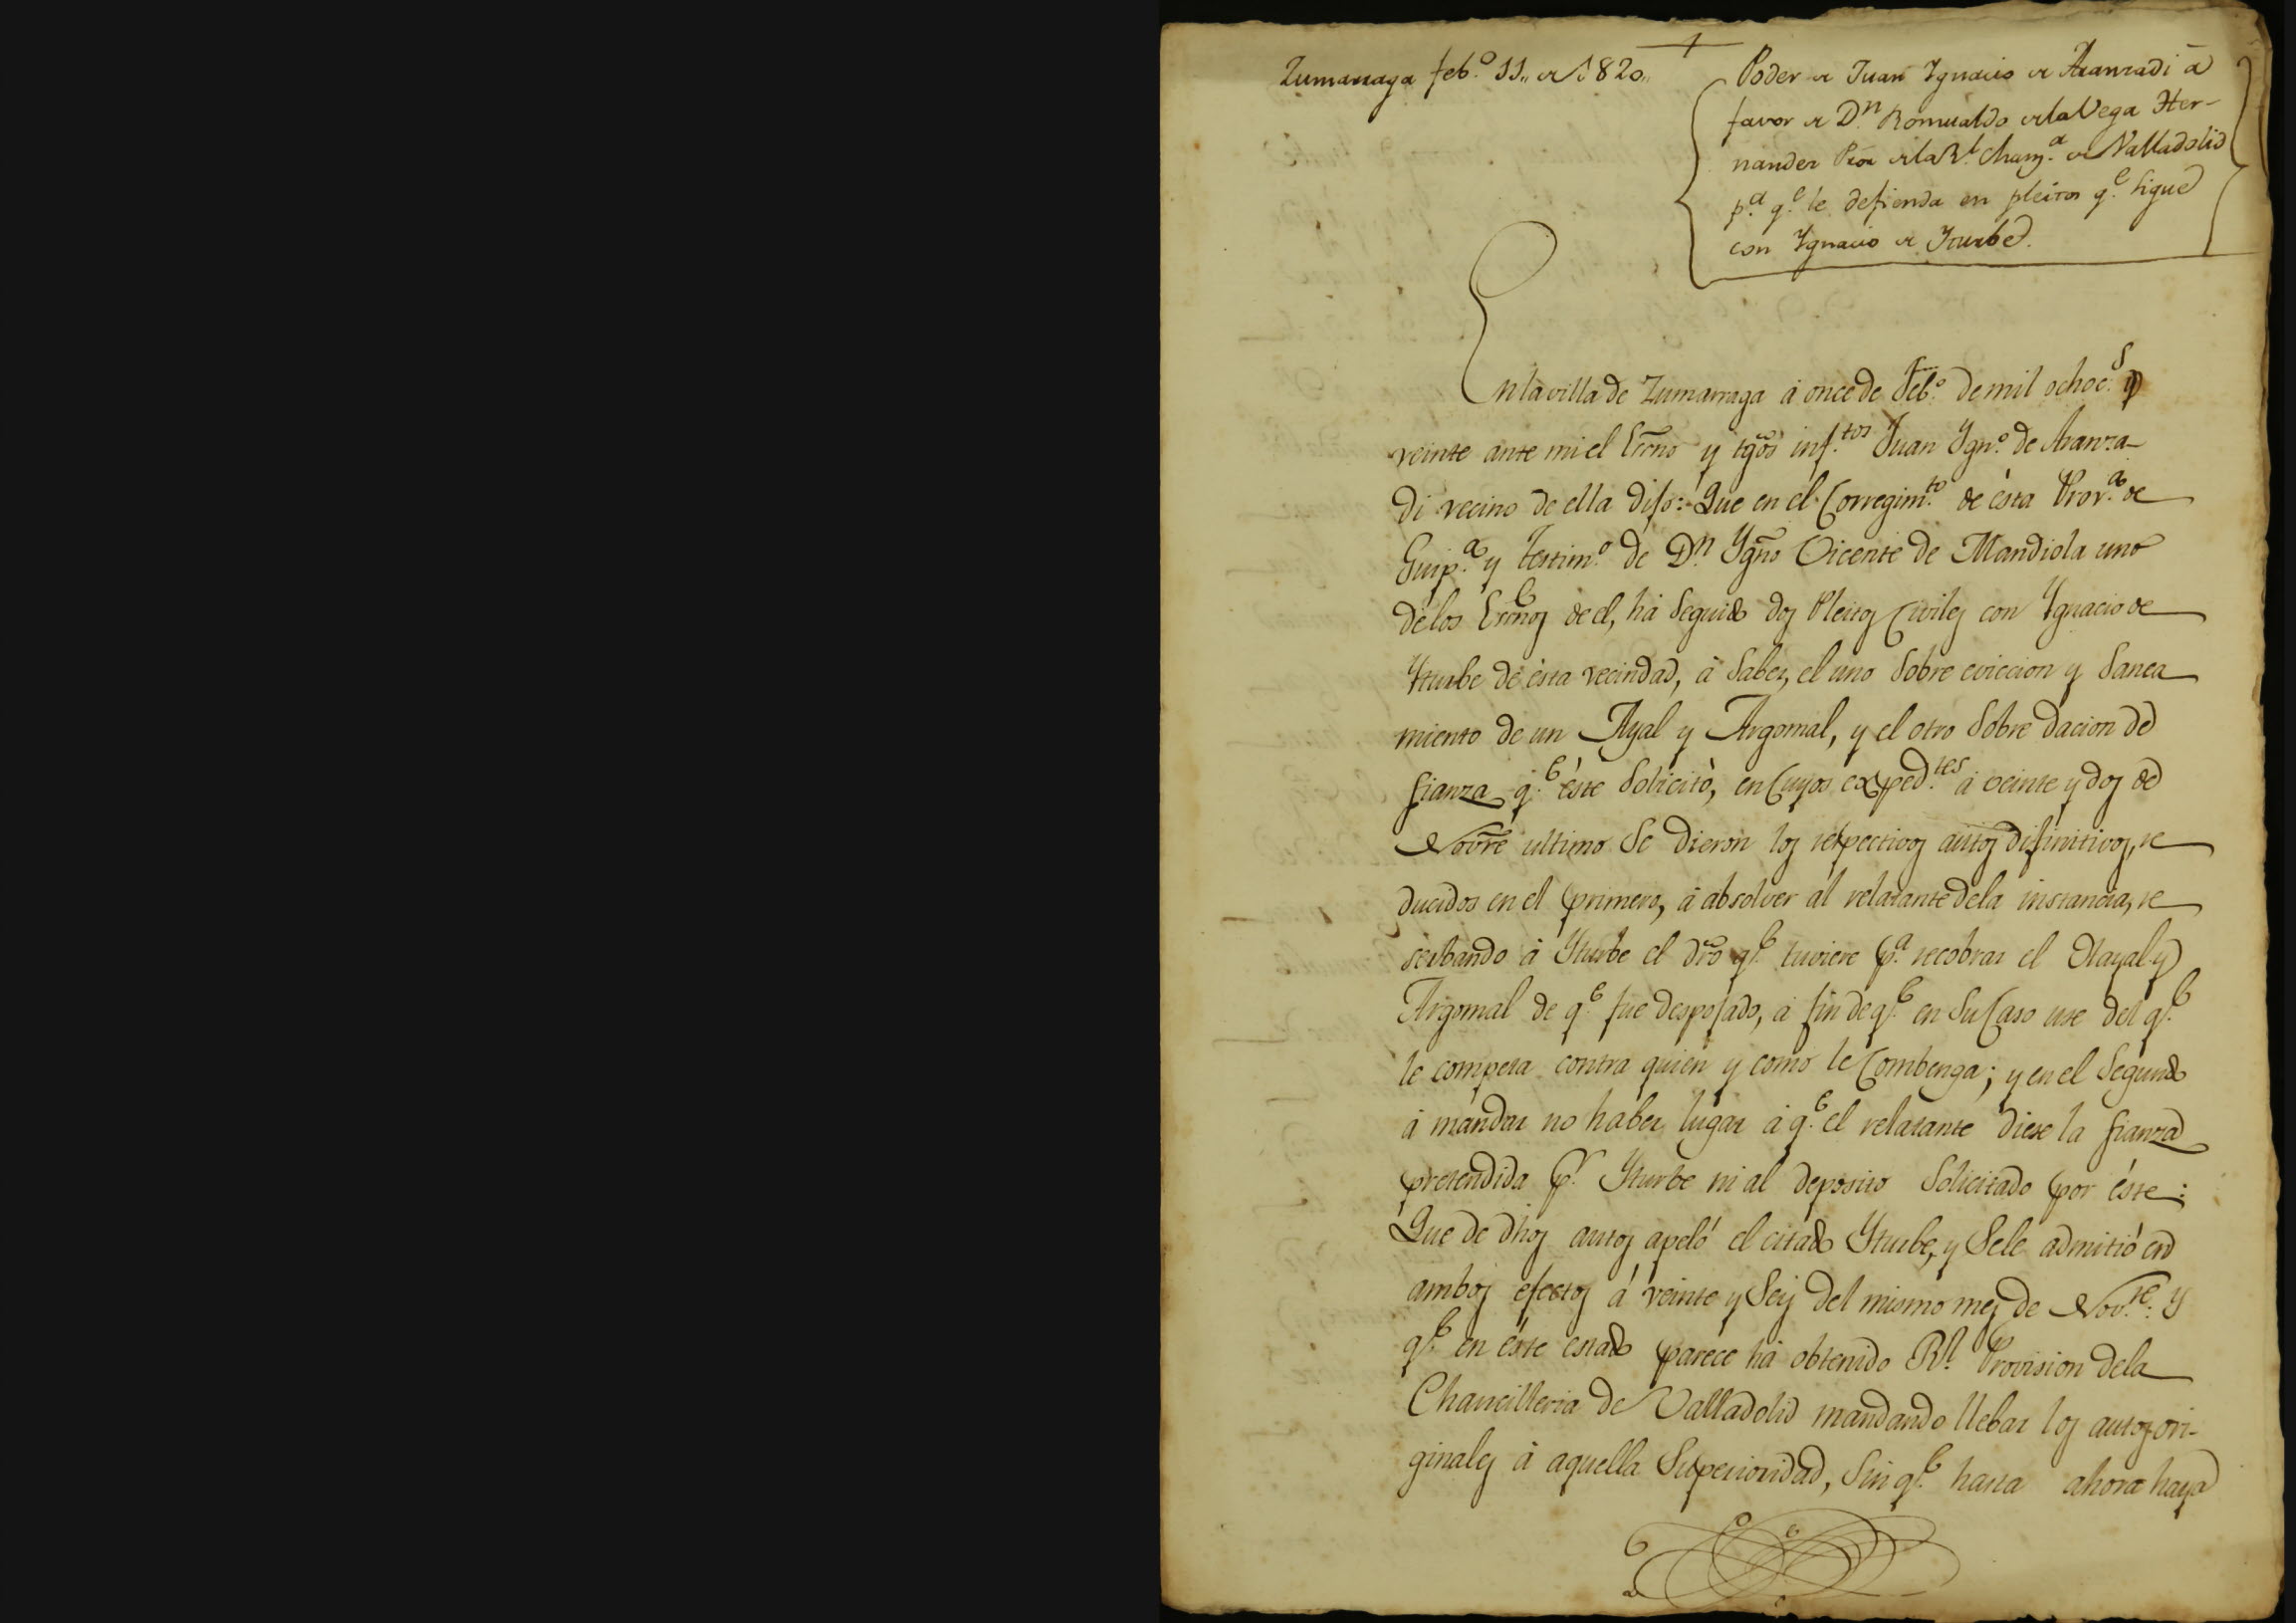 Zumarraga feb.o 11,, de 1820,,
Poder de Juan Ygnacio de Aranzadi á
favor de D.n Romualdo de la Vega Her-
nandez Pror de la Rl. Chanz.a de Valladolid
p.a q.e le defienda en pleitos q.e sigue
con Ygnacio de Yturbe.
En la villa de Zumarraga á once de Feb.o de mil ochoc.s y
veinte ante mi el Esc̃no y tg̃os inf.tos Juan Ygn.o de Aranza-
di vecino de ella dijo: Que en el Corregim.to de ésta Prov.a de
Guip.a y Testim.o de D.n Ygño Vicente de Mandiola uno
de los Esc̃nos de el, há seguido dos Pleitos Civiles con Ygnacio de
Yturbe de ésta vecindad, á saber, el uno sobre eviccion y sanea
miento de un Ayal y Argomal, y el otro sobre dacion de
fianza q.e éste solicitò, en cuyos exped.tes á veinte y dos de
Noṽre ultimo se dieron los respectivos autos difinitivos, re
ducidos en el primero, á absolver al relatante de la instancia, re
serbando á Yturbe el dr̃o q.e tuviere p.a recobrar el Ayal y
Argomal de q.e fue despojado, á fin de q.e en su caso use del q.e
le competa contra quien y como le combenga; y en el segundo
á mandar no haber lugar á q.e el relatante diese la fianza
pretendida p.r Yturbe ni al deposito solicitado por éste:
Que de dhos autos apeló el citado Yturbe, y se le admitió en
ambos efectos á veinte y seis del mismo mes de Nov.re: y
q.e en éste estado parece há obtenido Rl. Provision de la
Chancilleria de Valladolid mandando llebar los autos ori-
ginales á aquella Superioridad, sin q.e hasta ahora haya